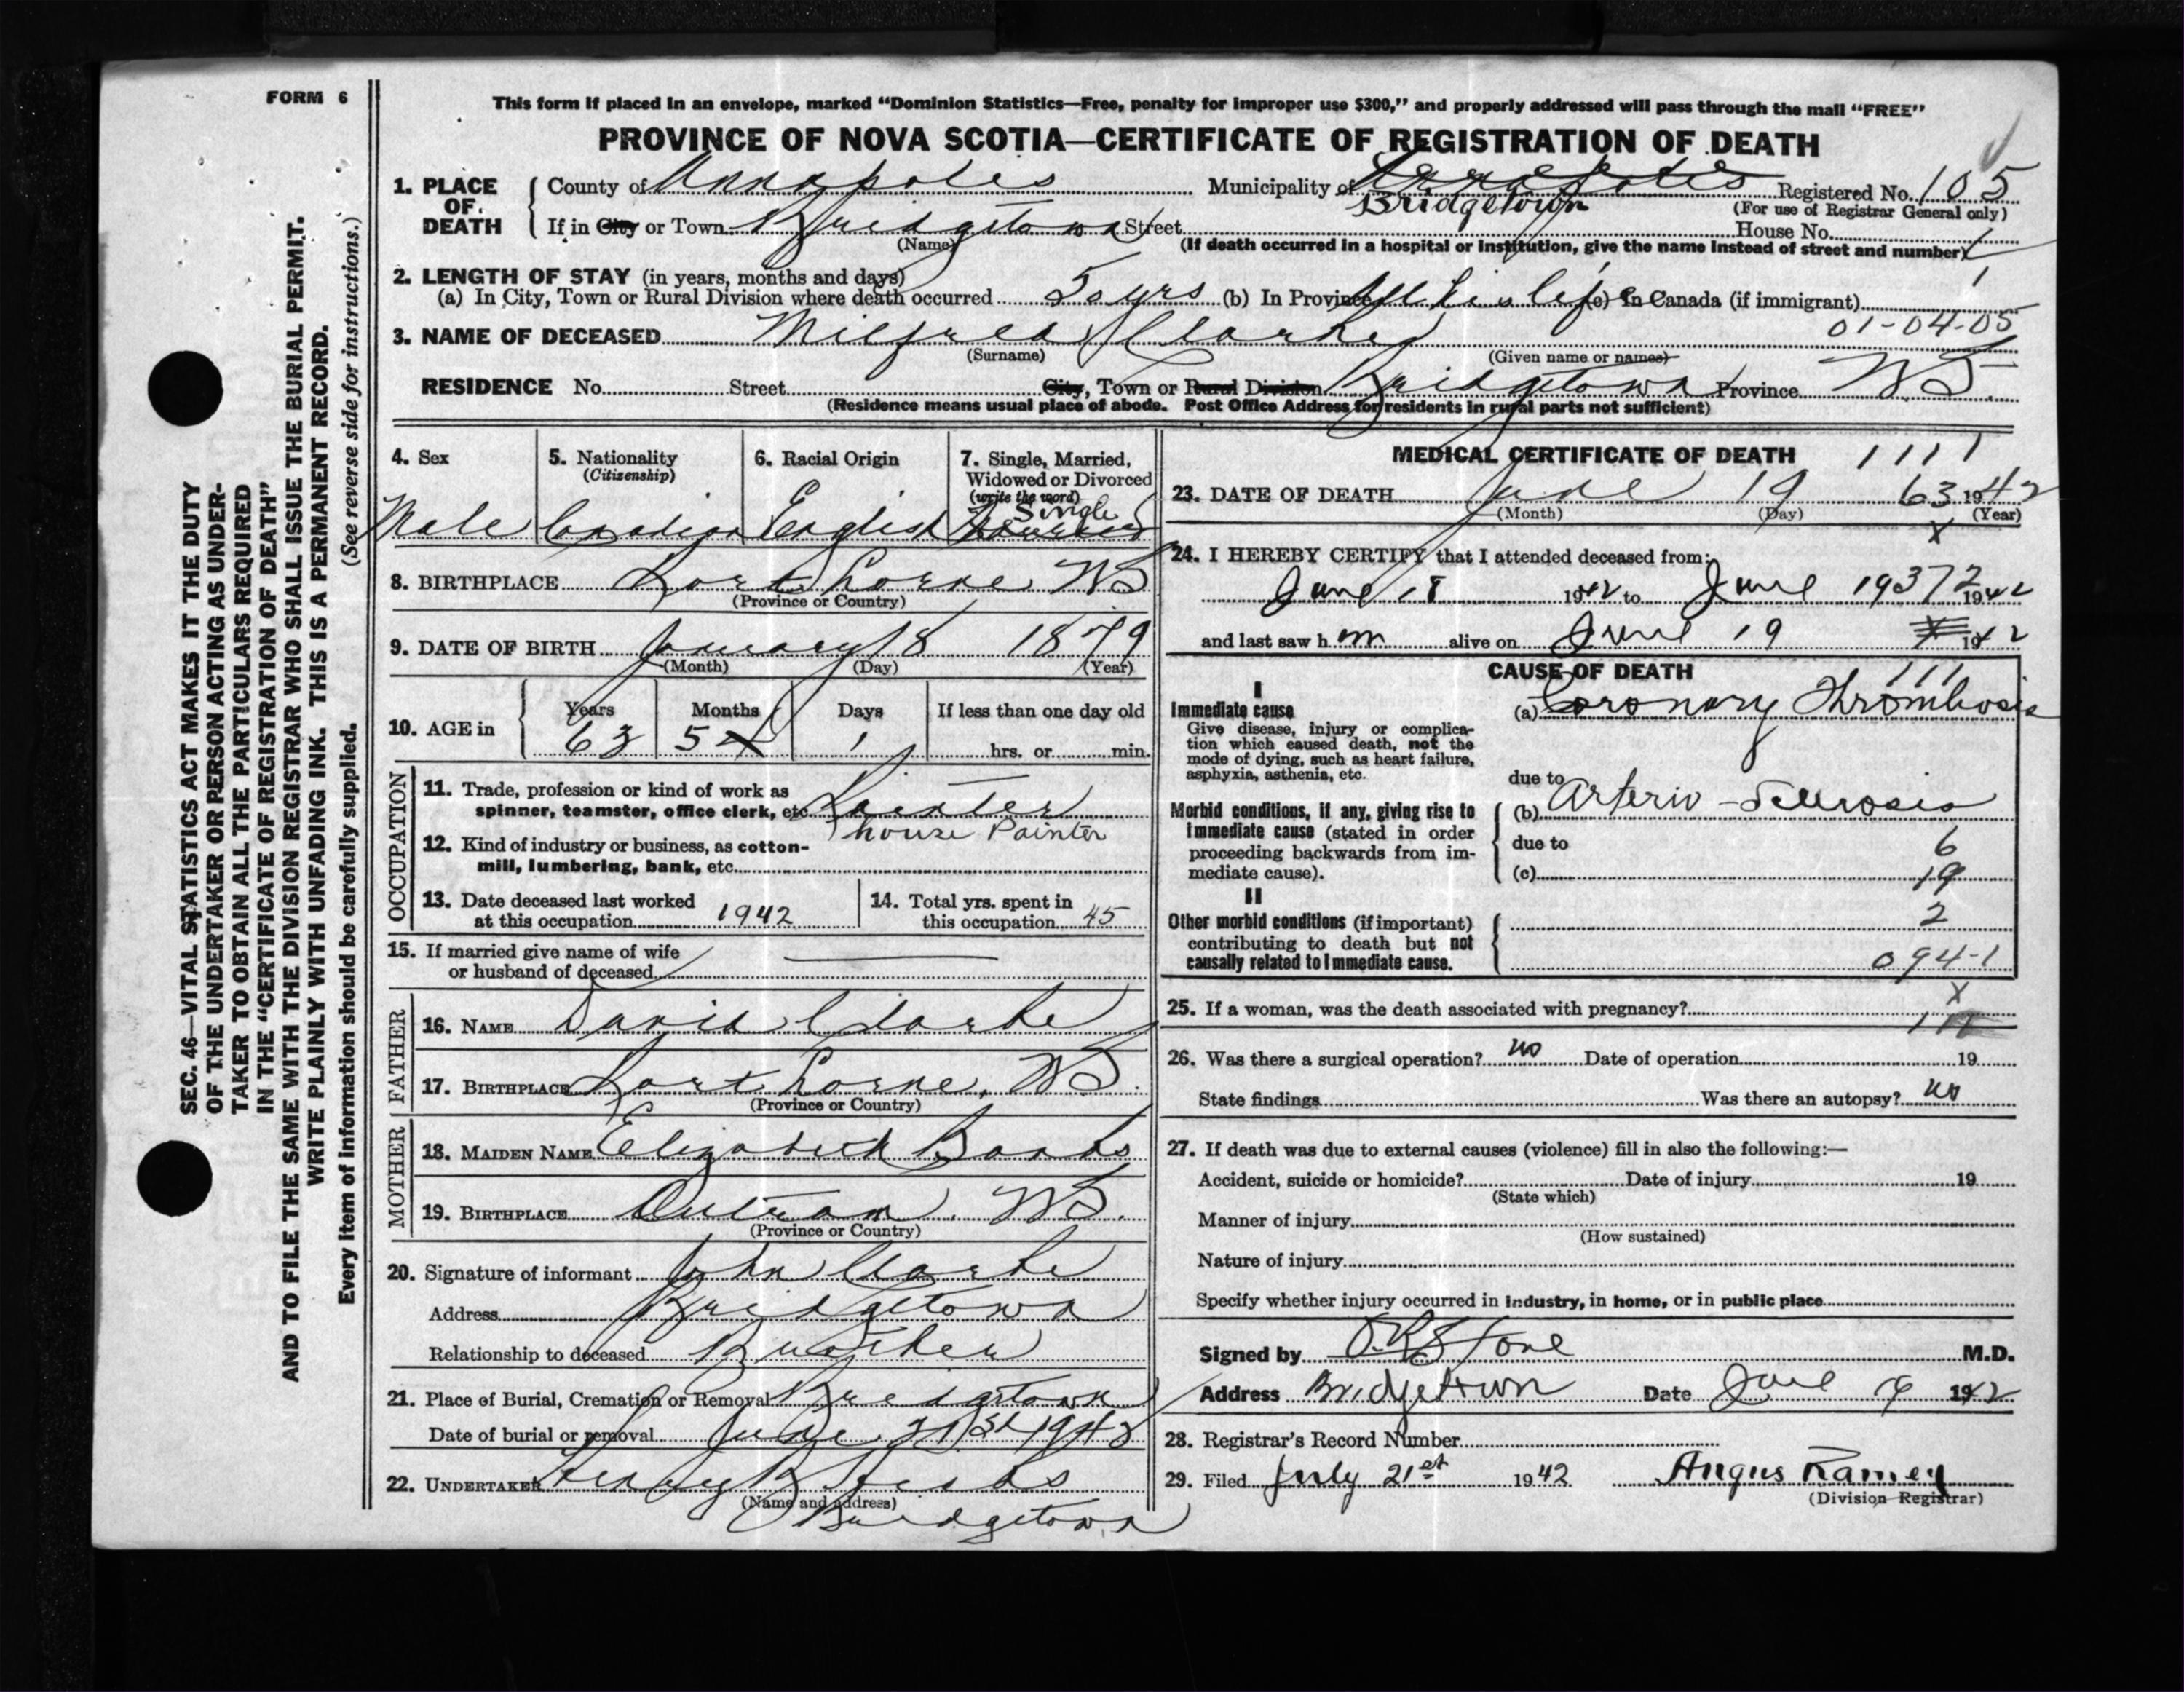 FORM 6
This form if placed in an envelope, marked “Dominion Statistics—Free, penalty for improper use $300,” and properly addressed will pass through the mail “FREE”
PROVINCE OF NOVA SCOTIA—CERTIFICATE OF REGISTRATION OF DEATH
1. PLACE OF DEATH
County of Annapolis Municipality of Annapolis Registered No. 105
Bridgetown
(For use of Registrar General only)
If in City or Town Bridgetown Street House No.
(Name)
(If death occurred in a hospital or institution, give the name instead of street and number)
2. LENGTH OF STAY (in years, months and days)
(a) In City, Town or Rural Division where death occurred 50 yrs (b) In Province All his life (c) In Canada (if immigrant)
01-04-05
3. NAME OF DECEASED Milfred Clarke
(Surname) (Given name or names)
RESIDENCE No. Street City, Town or Rural Division Bridgetown Province NS
(Residence means usual place of abode. Post Office Address for residents in rural parts not sufficient)
4. Sex 5. Nationality 6. Racial Origin 7. Single, Married,
(Citizenship) Widowed or Divorced
(write the word)
Single
Male Canadian English
8. BIRTHPLACE Port Lorne NS
(Province or Country)
9. DATE OF BIRTH January 18 1879
(Month) (Day) (Year)
10. AGE in
Years Months Days If less than one day old
63 5 1 hrs. or min.
OCCUPATION
11. Trade, profession or kind of work as
spinner, teamster, office clerk, etc. Painter
house Painter
12. Kind of industry or business, as cotton-
mill, lumbering, bank, etc.
13. Date deceased last worked
at this occupation 1942
14. Total yrs. spent in
this occupation 45
15. If married give name of wife
or husband of deceased
FATHER
16. NAME David Clarke
17. BIRTHPLACE Port Lorne, NS
(Province or Country)
MOTHER
18. MAIDEN NAME Elizabeth Banks
19. BIRTHPLACE Outram. NS.
(Province or Country)
20. Signature of informant John Clarke
Address Bridgetown
Relationship to deceased Brother
21. Place of Burial, Cremation or Removal Bridgetown
Date of burial or removal June 21st 1942
22. UNDERTAKER
(Name and address)
Bridgetown
MEDICAL CERTIFICATE OF DEATH 1111
23. DATE OF DEATH June 19 63 1942
(Month) (Day) (Year)
x
24. I HEREBY CERTIFY that I attended deceased from:
June 18 1942 to June 19 372 1942
and last saw him alive on June 19 1942
CAUSE OF DEATH
111
I
Immediate cause
Give disease, injury or complica-
tion which caused death, not the
mode of dying, such as heart failure,
asphyxia, asthenia, etc.
(a) Coronary Thrombosis
due to
Morbid conditions, if any, giving rise to
immediate cause (stated in order
proceeding backwards from im-
mediate cause).
(b) Arterio-Sclerosis
due to
6
(c) 19
II
2
Other morbid conditions (if important)
contributing to death but not
causally related to immediate cause.
094-1
25. If a woman, was the death associated with pregnancy?
x
26. Was there a surgical operation? no Date of operation 19
State findings Was there an autopsy? no
27. If death was due to external causes (violence) fill in also the following:—
Accident, suicide or homicide? Date of injury 19
(State which)
Manner of injury
(How sustained)
Nature of injury
Specify whether injury occurred in industry, in home, or in public place
Signed by Stone M.D.
Address Bridgetown Date June 19 1942
28. Registrar's Record Number
29. Filed July 21st 1942 Angus Ramey
(Division Registrar)
SEC. 46—VITAL STATISTICS ACT MAKES IT THE DUTY
OF THE UNDERTAKER OR PERSON ACTING AS UNDER-
TAKER TO OBTAIN ALL THE PARTICULARS REQUIRED
IN THE “CERTIFICATE OF REGISTRATION OF DEATH”
AND TO FILE THE SAME WITH THE DIVISION REGISTRAR WHO SHALL ISSUE THE BURIAL PERMIT.
WRITE PLAINLY WITH UNFADING INK. THIS IS A PERMANENT RECORD.
Every item of information should be carefully supplied. (See reverse side for instructions.)